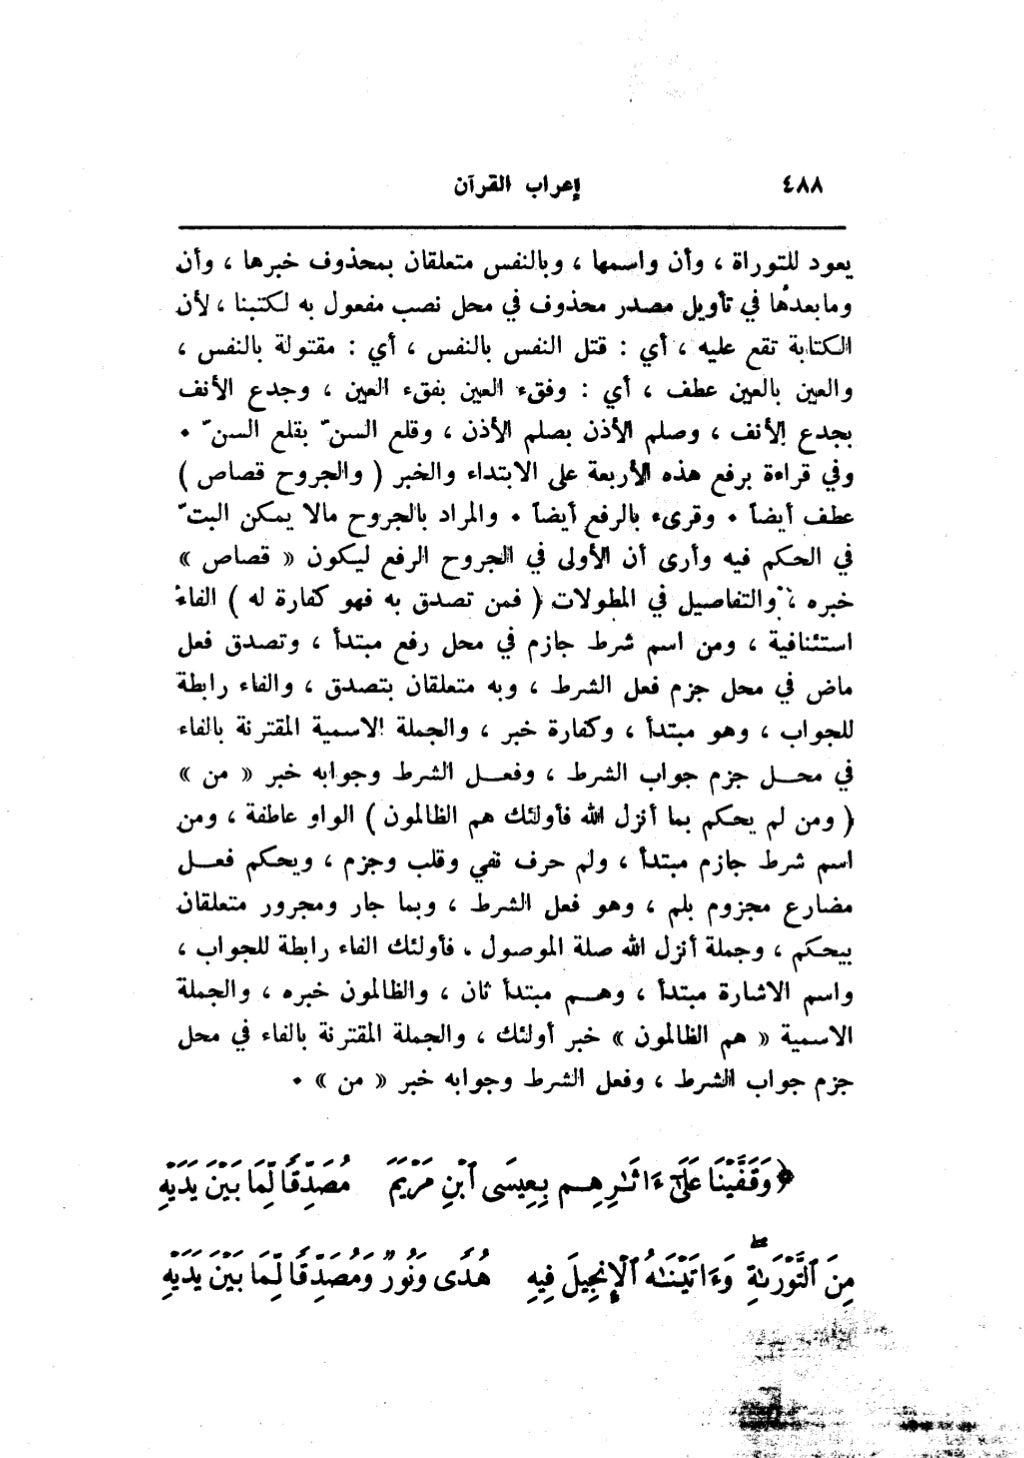 ٤٨٨ إعراب القرآن
يعود للتوراة ، وأن واسمها ، وبالنفس متعلقان بمحذوف خبرها ، وأن
وما بعدها في تأويل مصدر محذوف في محل نصب مفعول به لكتبنا ، لأن
الكتابة تقع عليه ، أي : قتل النفس بالنفس ، أي : مقتولة بالنفس ،
والعين بالعين عطف ، أي : وفقء العين بفقء العين ، وجدع الأنف
بجدع الأنف ، وصلم الأذن بصلم الأذن ، وقلع السنّ بقلع السنّ •
وفي قراءة برفع هذه الأربعة على الابتداء والخبر ( والجروح قصاص )
عطف أيضاً • وقرىء بالرفع أيضاً • والمراد بالجروح مالا يمكن البتّ
في الحكم فيه وأرى أن الأولى في الجروح الرفع ليكون « قصاص »
خبره ، والتفاصيل في المطولات ( فمن تصدق به فهو كفارة له ) الفاء
استئنافية ، ومن اسم شرط جازم في محل رفع مبتدأ ، وتصدق فعل
ماض في محل جزم فعل الشرط ، وبه متعلقان بتصدق ، والفاء رابطة
للجواب ، وهو مبتدأ ، وكفارة خبر ، والجملة الاسمية المقترنة بالفاء
في محل جزم جواب الشرط ، وفعل الشرط وجوابه خبر « من »
( ومن لم يحكم بما أنزل الله فأولئك هم الظالمون ) الواو عاطفة ، ومن
اسم شرط جازم مبتدأ ، ولم حرف نفي وقلب وجزم ، ويحكم فعل
مضارع مجزوم بلم ، وهو فعل الشرط ، وبما جار ومجرور متعلقان
بيحكم ، وجملة أنزل الله صلة الموصول . فأولئك الفاء رابطة للجواب ،
واسم الاشارة مبتدأ ، وهم مبتدأ ثان ، والظالمون خبره ، والجملة
الاسمية « هم الظالمون » خبر أولئك ، والجملة المقترنة بالفاء في محل
جزم جواب الشرط ، وفعل الشرط وجوابه خبر « من » •
﴿ وَقَفَّيْنَا عَلَىٰٓ ءَاثَـٰرِهِـم بِعِيسَى ٱبْنِ مَرْيَمَ مُصَدِّقًا لِّمَا بَيْنَ يَدَيْهِ
مِنَ ٱلتَّوْرَىٰةِ ۖ وَءَاتَيْنَـٰهُ ٱلْإِنجِيلَ فِيهِ هُدًى وَنُورٌ وَمُصَدِّقًا لِّمَا بَيْنَ يَدَيْهِ